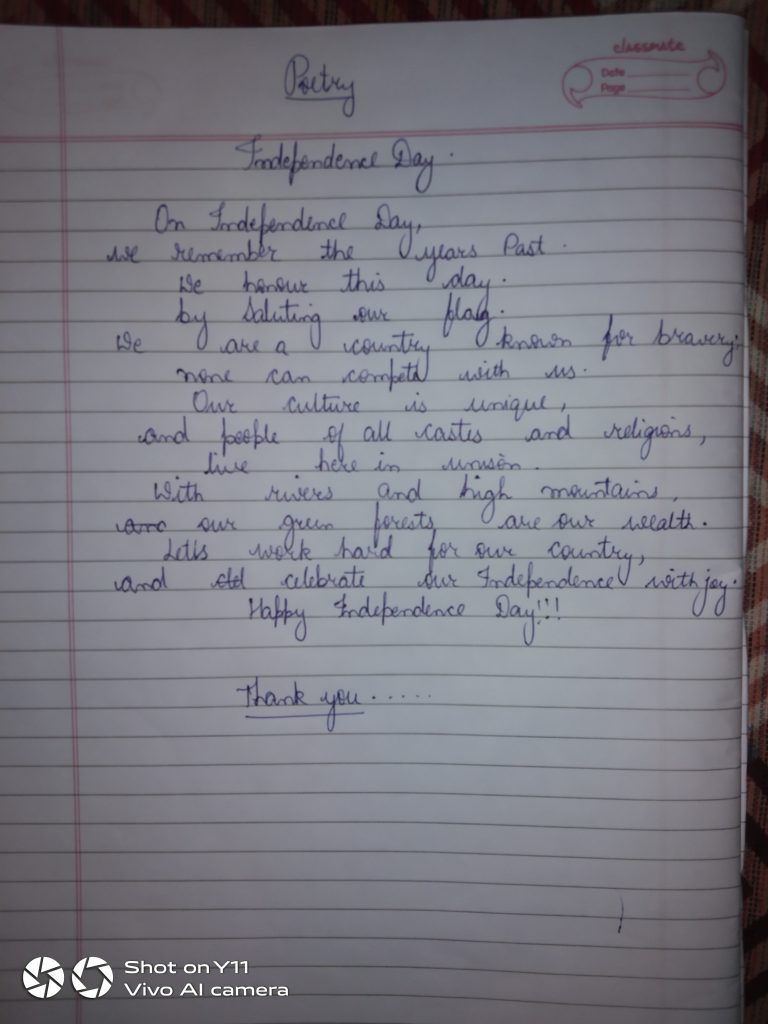 classmate
Date
Page
Poetry
Independence Day.
On Independence Day,
we remember the years Past.
We honour this day.
by Saluting our flag.
We are a country known for bravery;
none can compete with us.
Our culture is unique,
and people of all castes and religions,
live here in unison.
With rivers and high mountains,
our green forests are our wealth.
Let's work hard for our country,
and celebrate our Independence with joy.
Happy Independence Day!!!
Thank you.....
Shot on Y11
Vivo AI camera